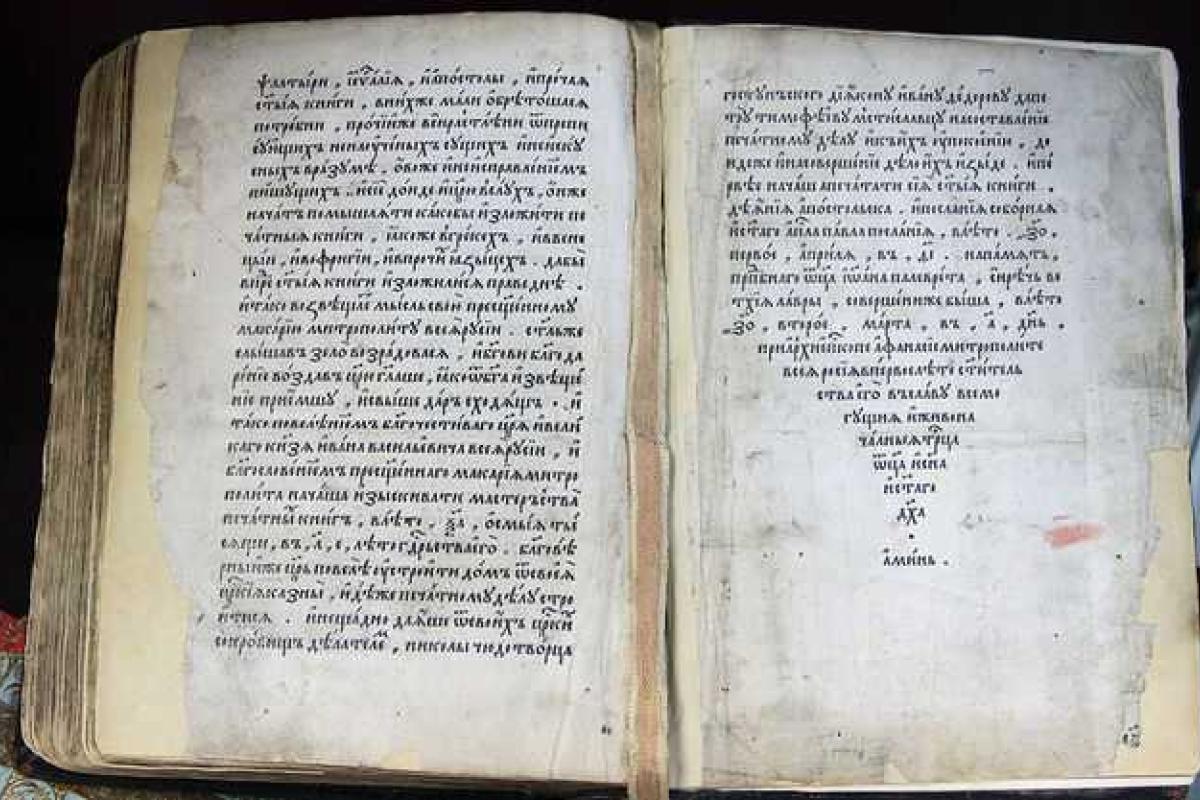 ѱалтыри , є҆ѵⷢ҇алїѧ , и҆апо́столы , и҆про́чаѧ
ст҃ы́ѧ кни́ги , вни́хже ма́ли ѻ҆брѣто́шасѧ
потре́бни , про́чїиже всѝ растлѣ́ни ѿпрепи
сꙋ́ющихъ ненаꙋче́ныхъ сꙋ́щихъ и҆неискꙋ
сныхъ вра́зꙋмѣ , ѻ҆во́же и҆неисправле́нїемъ
пи́шꙋщихъ . и҆сїѐ до́иде и҆цр҃ю̀ вслꙋ́хъ , ѻ҆́нже
нача́тъ помышлѧ́ти ка́кобы и҆зложи́ти пе
ча́тныѧ кни́ги , ꙗ҆́коже вгре́кехъ , и҆ввене
цы́и , и҆вофриги́и , и҆впро́чїихъ ꙗ҆зы́цехъ . дабы̀
впре́дь ст҃ы́ѧ кни́ги и҆зложи́лисѧ пра́веднѣ .
и҆та́ко возвѣща́етъ мы́сль свою̀ прес҃ще́нномꙋ
мака́рїю митрополи́тꙋ всеѧ̀рꙋсі́и . ст҃льже
слы́шавъ зело̀ возра́довасѧ , и҆бг҃ови бл҃года
ре́нїе возда́въ цр҃ю̀ глаⷡ҇ше , ꙗ҆́ко ѿбг҃а и҆звѣще́
нїе прїе́мшꙋ , и҆свы́ше да́ръ сходѧ́щъ . и҆
та́ко повелѣ́нїемъ бл҃гочести́ваго цр҃ѧ̀ и҆вели́
каго кн҃зѧ и҆ва́на васи́льевича всеѧ̀рꙋсі́и , и҆
бл҃гослове́нїемъ прес҃ще́ннаго мака́рїѧ митро
поли́та нача́ша и҆зы́скивати ма́стерьства̀
печа́тныхъ кни́гъ , влѣ́то , ѯ҃а , ѻ҆смы́ѧ ты́
сѧщи , въ , л҃ , е , лѣ́то гдⷭ҇рьства є҆го̀ . бл҃говѣ́
рныже цр҃ь повелѣ̀ ᲂу҆стро́ити до́мъ ѿсвоеѧ̀
цр҃скїѧ казны̀ , и҆дѣ́же печа́тномꙋ дѣ́лꙋ стро
и́тисѧ . и҆неща́дно даѧ́ше ѿсвои́хъ цр҃скихъ
сокро́вищъ дѣ́лателемъ , нико́лы чюдотво́рца
госту́нъскаго дїѧ́конꙋ и҆ва́нꙋ ѳе́доровꙋ дапе
трꙋ̀ тимоѳѣ́евꙋ мстисла́вцꙋ насоставле́нїе
печа́тномꙋ дѣ́лꙋ и҆къи́хъ ᲂу҆покое́нїю , до́
ндеже и҆насоверше́нїе дѣ́ло и҆́хъ и҆зы́де . и҆пе́
рвѣе нача́ша печа́тати сїѧ̀ ст҃ы́ѧ кни́ги .
дѣѧ́нїѧ а҆по́столска . и҆посла́нїѧ собо́рнаѧ
и҆ст҃а́го а҆пⷭ҇ла па́вла посла́нїѧ , влѣ́то . ҂зо҃ .
пе́рвое , а҆прі́лѧ , въ , ѳ҃і . напа́мѧть ,
прпⷣбнаго ѻ҆ц҃а̀ і҆ѡа́на палеврета , си́рѣчь ве́
тхїѧ ла́вры , соверше́ниже бы́ша , влѣ́то
҂зо҃ , второ́е . ма́рта , въ , а҃ , дн҃ь .
приа҆рхїеп҃копе а҆ѳана́сїе митрополи́те
всеѧ̀ росі́ѧ впе́рвое лѣ́то ст҃и́тель
ства є҆гѡ̀ въсла́вꙋ всемо
гꙋ́щїѧ и҆живона
ча́лныѧ трⷪ҇ца
ѻ҆ц҃а̀ и҆сн҃а
и҆ст҃а́го
дх҃а
.
а҆ми́нь .